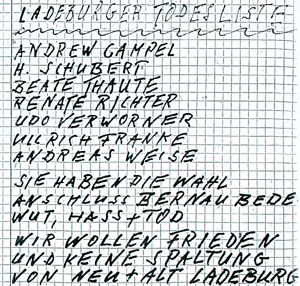 LADEBURGER TODESLISTE
ANDREW GAMPEL
H. SCHUBERT
BEATE THAUTE
RENATE RICHTER
UDO VERWORNER
ULLRICH FRANKE
ANDREAS WEISE
SIE HABEN DIE WAHL
ANSCHLUSS BERNAU BEDE
WUT, HASS + TOD
WIR WOLLEN FRIEDEN
UND KEINE SPALTUNG
VON NEU + ALT LADEBURG